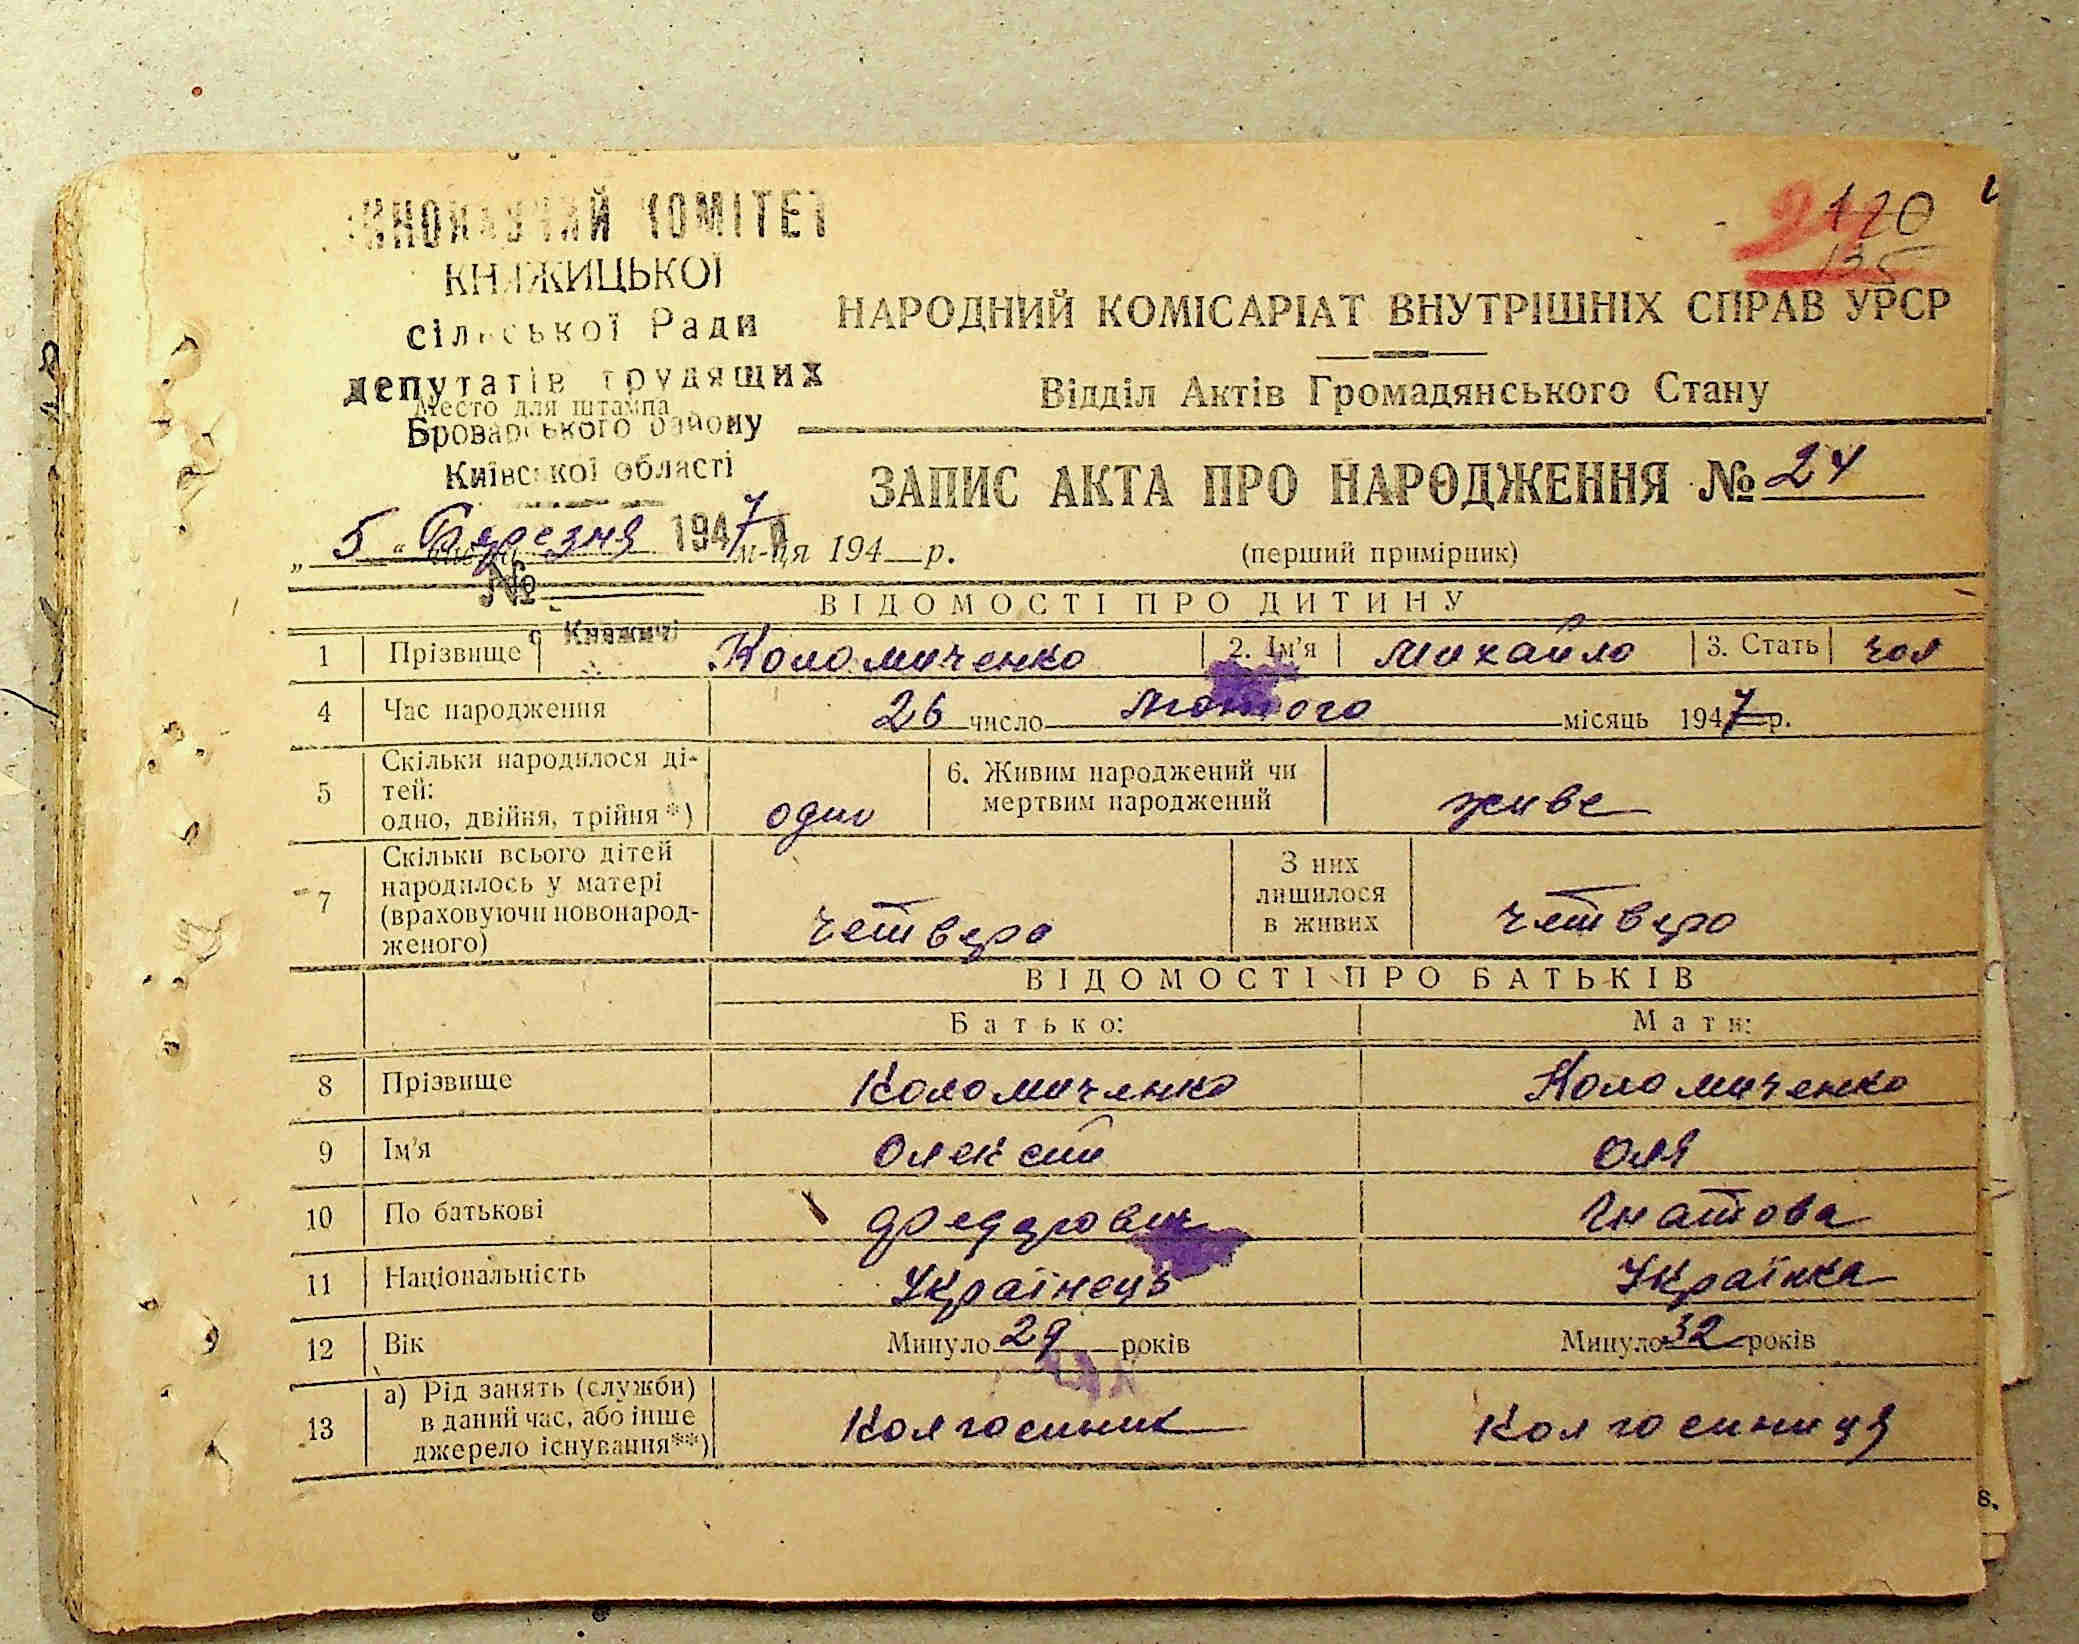 ВИКОНАВЧИЙ КОМІТЕТ
КНЯЖИЦЬКОЇ
сільської Ради
депутатів трудящих
Место для штампа
Броварського району
Київської області
5 Березня 1947 р.
м-ця 194 р.
№
с. Княжичі
120
135
НАРОДНИЙ КОМІСАРІАТ ВНУТРІШНІХ СПРАВ УРСР
Відділ Актів Громадянського Стану
ЗАПИС АКТА ПРО НАРОДЖЕННЯ № 24
(перший примірник)
ВІДОМОСТІ ПРО ДИТИНУ
1 Прізвище Коломиченко 2. Ім'я Михайло 3. Стать чол
4 Час народження 26 число Лютого місяць 1947 р.
5 Скільки народилося ді-
тей:
одно, двійня, трійня*) одно 6. Живим народжений чи
мертвим народжений живе
7 Скільки всього дітей
народилось у матері
(враховуючи новонарод-
женого) четверо З них
лишилося
в живих четверо
ВІДОМОСТІ ПРО БАТЬКІВ
Батько: Мати:
8 Прізвище Коломиченко Коломиченко
9 Ім'я Олексій Оля
10 По батькові Федорович Гнатова
11 Національність Українець Українка
12 Вік Минуло 29 років Минуло 32 років
13 а) Рід занять (служби)
в даний час, або інше
джерело існування**) Колгоспник Колгоспниця